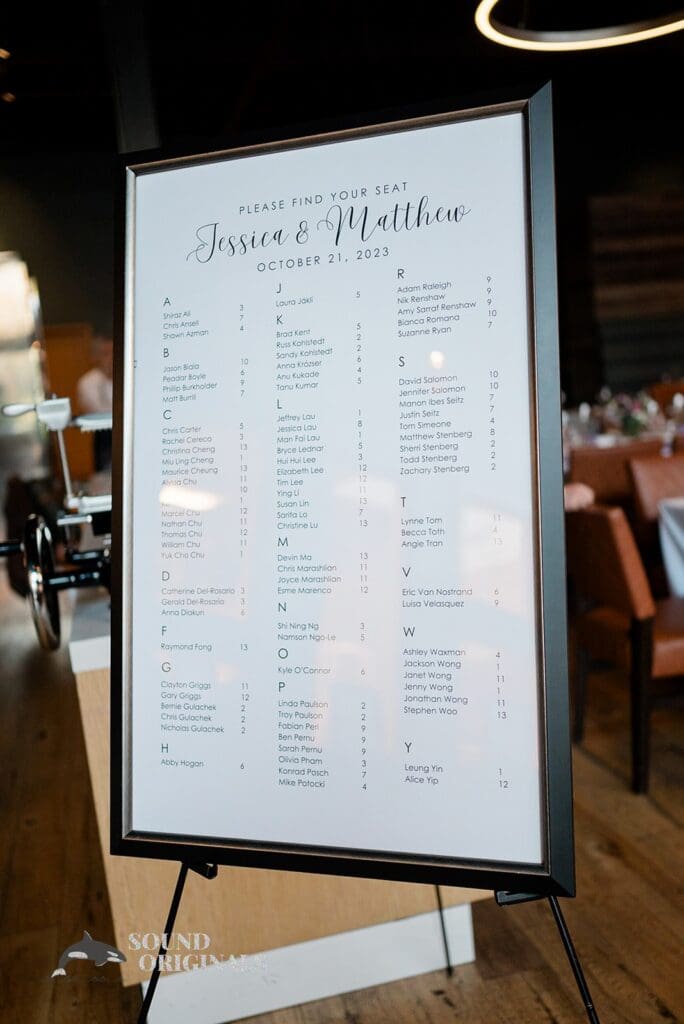 PLEASE FIND YOUR SEAT
Jessica & Matthew
OCTOBER 21, 2023
A
Shiraz Ali 3
Chris Ansell 7
Shawn Azman 4
B
Jason Biala 10
Peadar Boyle 6
Phillip Burkholder 9
Matt Burrill 7
C
Chris Carter 5
Rachel Cereca 3
Christina Cheng 13
Miu Ling Cheng 1
Maurice Cheung 13
Alyssa Chu 11
10
1
Marcel Chu 12
Nathan Chu 11
Thomas Chu 12
William Chu 11
Yuk Cho Chu 1
D
Catherine Del-Rosario 3
Gerald Del-Rosario 3
Anna Diakun 6
F
Raymond Fong 13
G
Clayton Griggs 11
Gary Griggs 12
Bernie Gulachek 2
Chris Gulachek 2
Nicholas Gulachek 2
H
Abby Hogan 6
J
Laura Jákli 5
K
Brad Kent 5
Russ Kohlstedt 2
Sandy Kohlstedt 2
Anna Krózser 6
Anu Kukade 4
Tanu Kumar 5
L
Jeffrey Lau 1
Jessica Lau 8
Man Fai Lau 1
Bryce Lednar 5
Hui Hui Lee 3
Elizabeth Lee 12
Tim Lee 12
Ying Li 11
Susan Lin 13
Sarita Lo 7
Christine Lu 13
M
Devin Ma 13
Chris Marashlian 11
Joyce Marashlian 11
Esme Marenco 12
N
Shi Ning Ng 3
Namson Ngo-Le 5
O
Kyle O'Connor 6
P
Linda Paulson 2
Troy Paulson 2
Fabian Peri 9
Ben Pernu 9
Sarah Pernu 9
Olivia Pham 3
Konrad Posch 7
Mike Potocki 4
R
Adam Raleigh 9
Nik Renshaw 9
Amy Sarraf Renshaw 9
Bianca Romana 10
Suzanne Ryan 7
S
David Salomon 10
Jennifer Salomon 10
Manon Ibes Seitz 7
Justin Seitz 7
Tom Simeone 4
Matthew Stenberg 8
Sherri Stenberg 2
Todd Stenberg 2
Zachary Stenberg 2
T
Lynne Tom 11
Becca Toth 4
Angie Tran 13
V
Eric Van Nostrand 6
Luisa Velasquez 9
W
Ashley Waxman 4
Jackson Wong 1
Janet Wong 11
Jenny Wong 1
Jonathan Wong 11
Stephen Woo 13
Y
Leung Yin 1
Alice Yip 12
SOUND
ORIGINALS